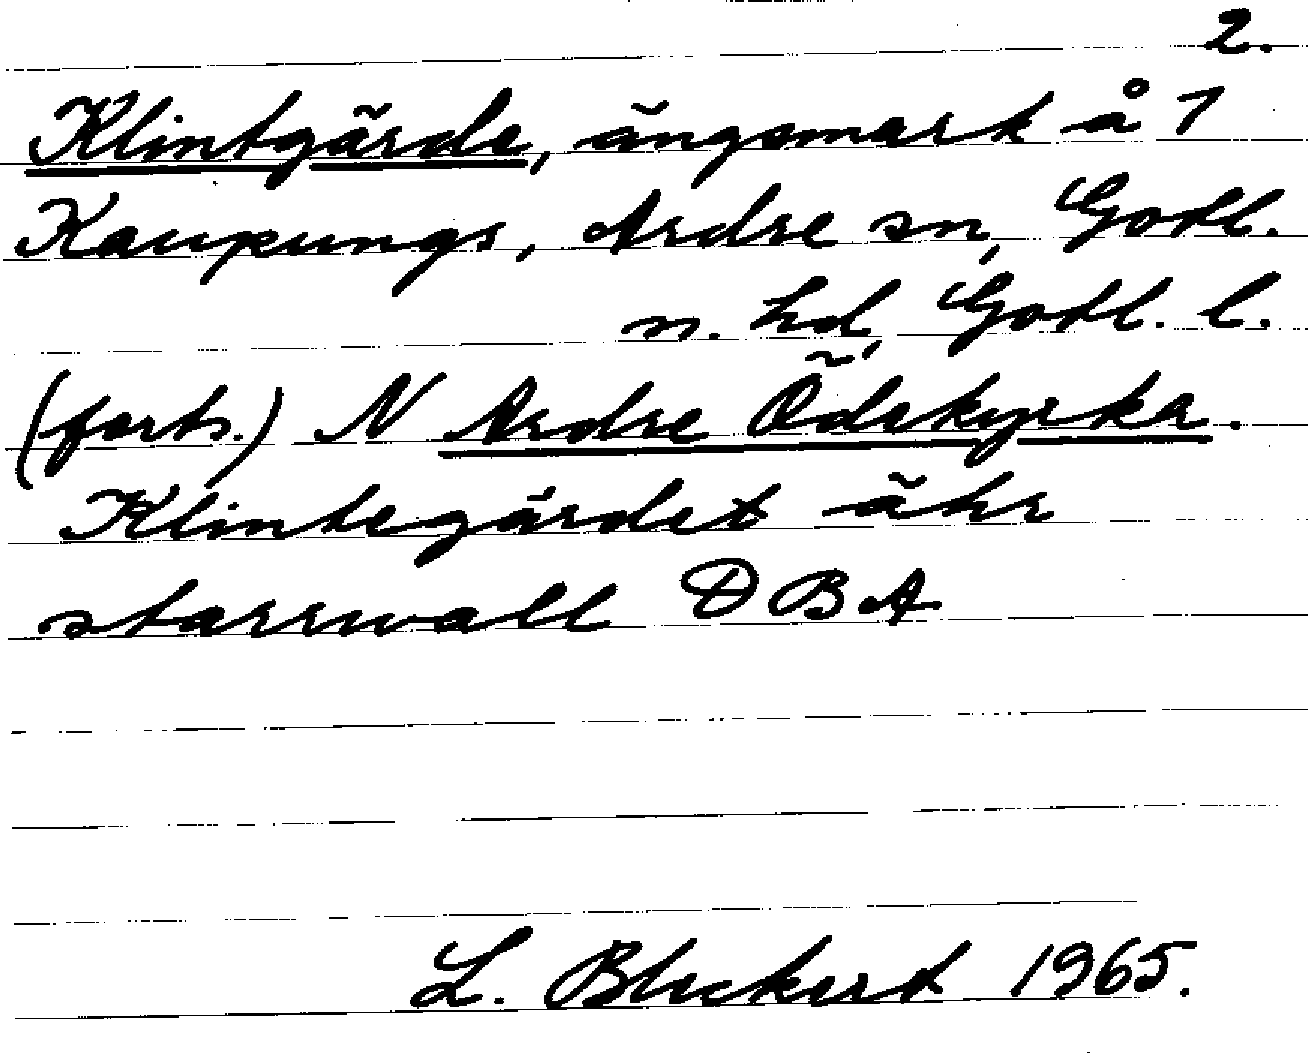 2.
Klintgärde, ängsmark å 1
Kaupungs, Ardre sn, Gotl.
n. hd, Gotl. l.
(forts.) N Ardre Ödekyrka.
Klintegärdet ähr
starrwall DBA
L. Bleckert 1965.